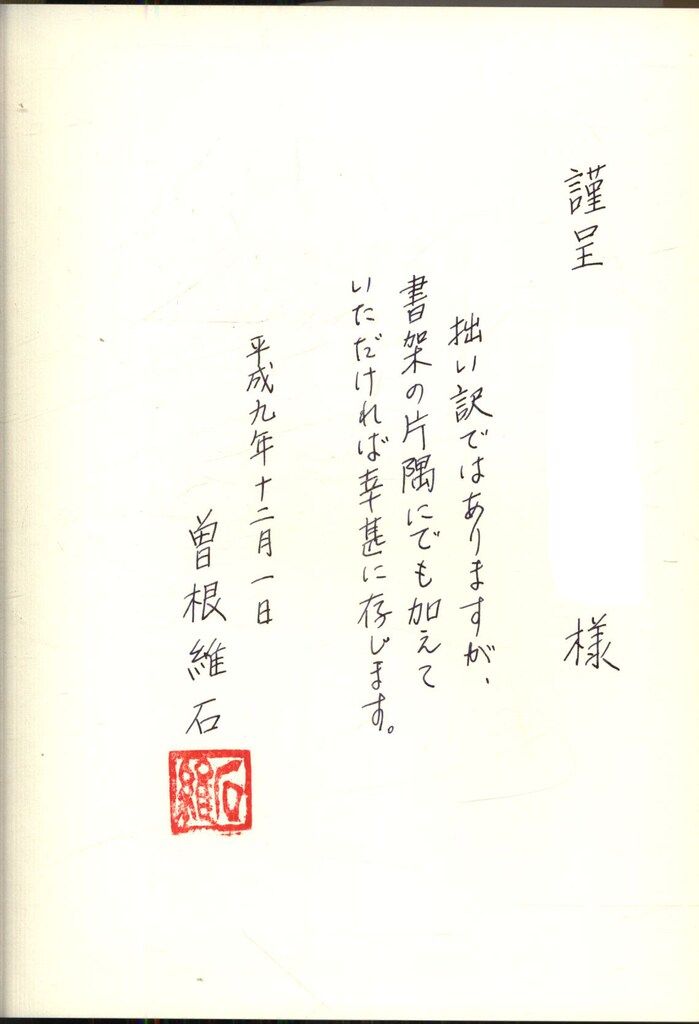 謹呈
様
拙い訳ではありますが、
書架の片隅にでも加えて
いただければ幸甚に存じます。
平成九年十二月一日
曽根維石
維石